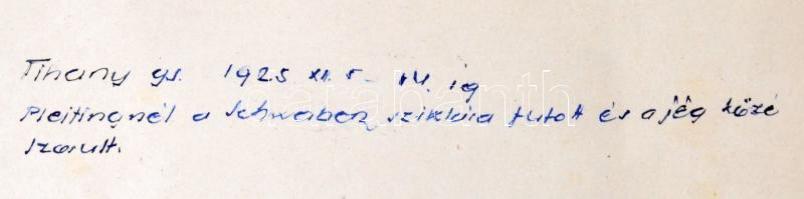 Tihany gs. 1925 XI. 5 - 14. ig
Pleitingnél a Schwaben sziklára futott és a jég közé
szorult.